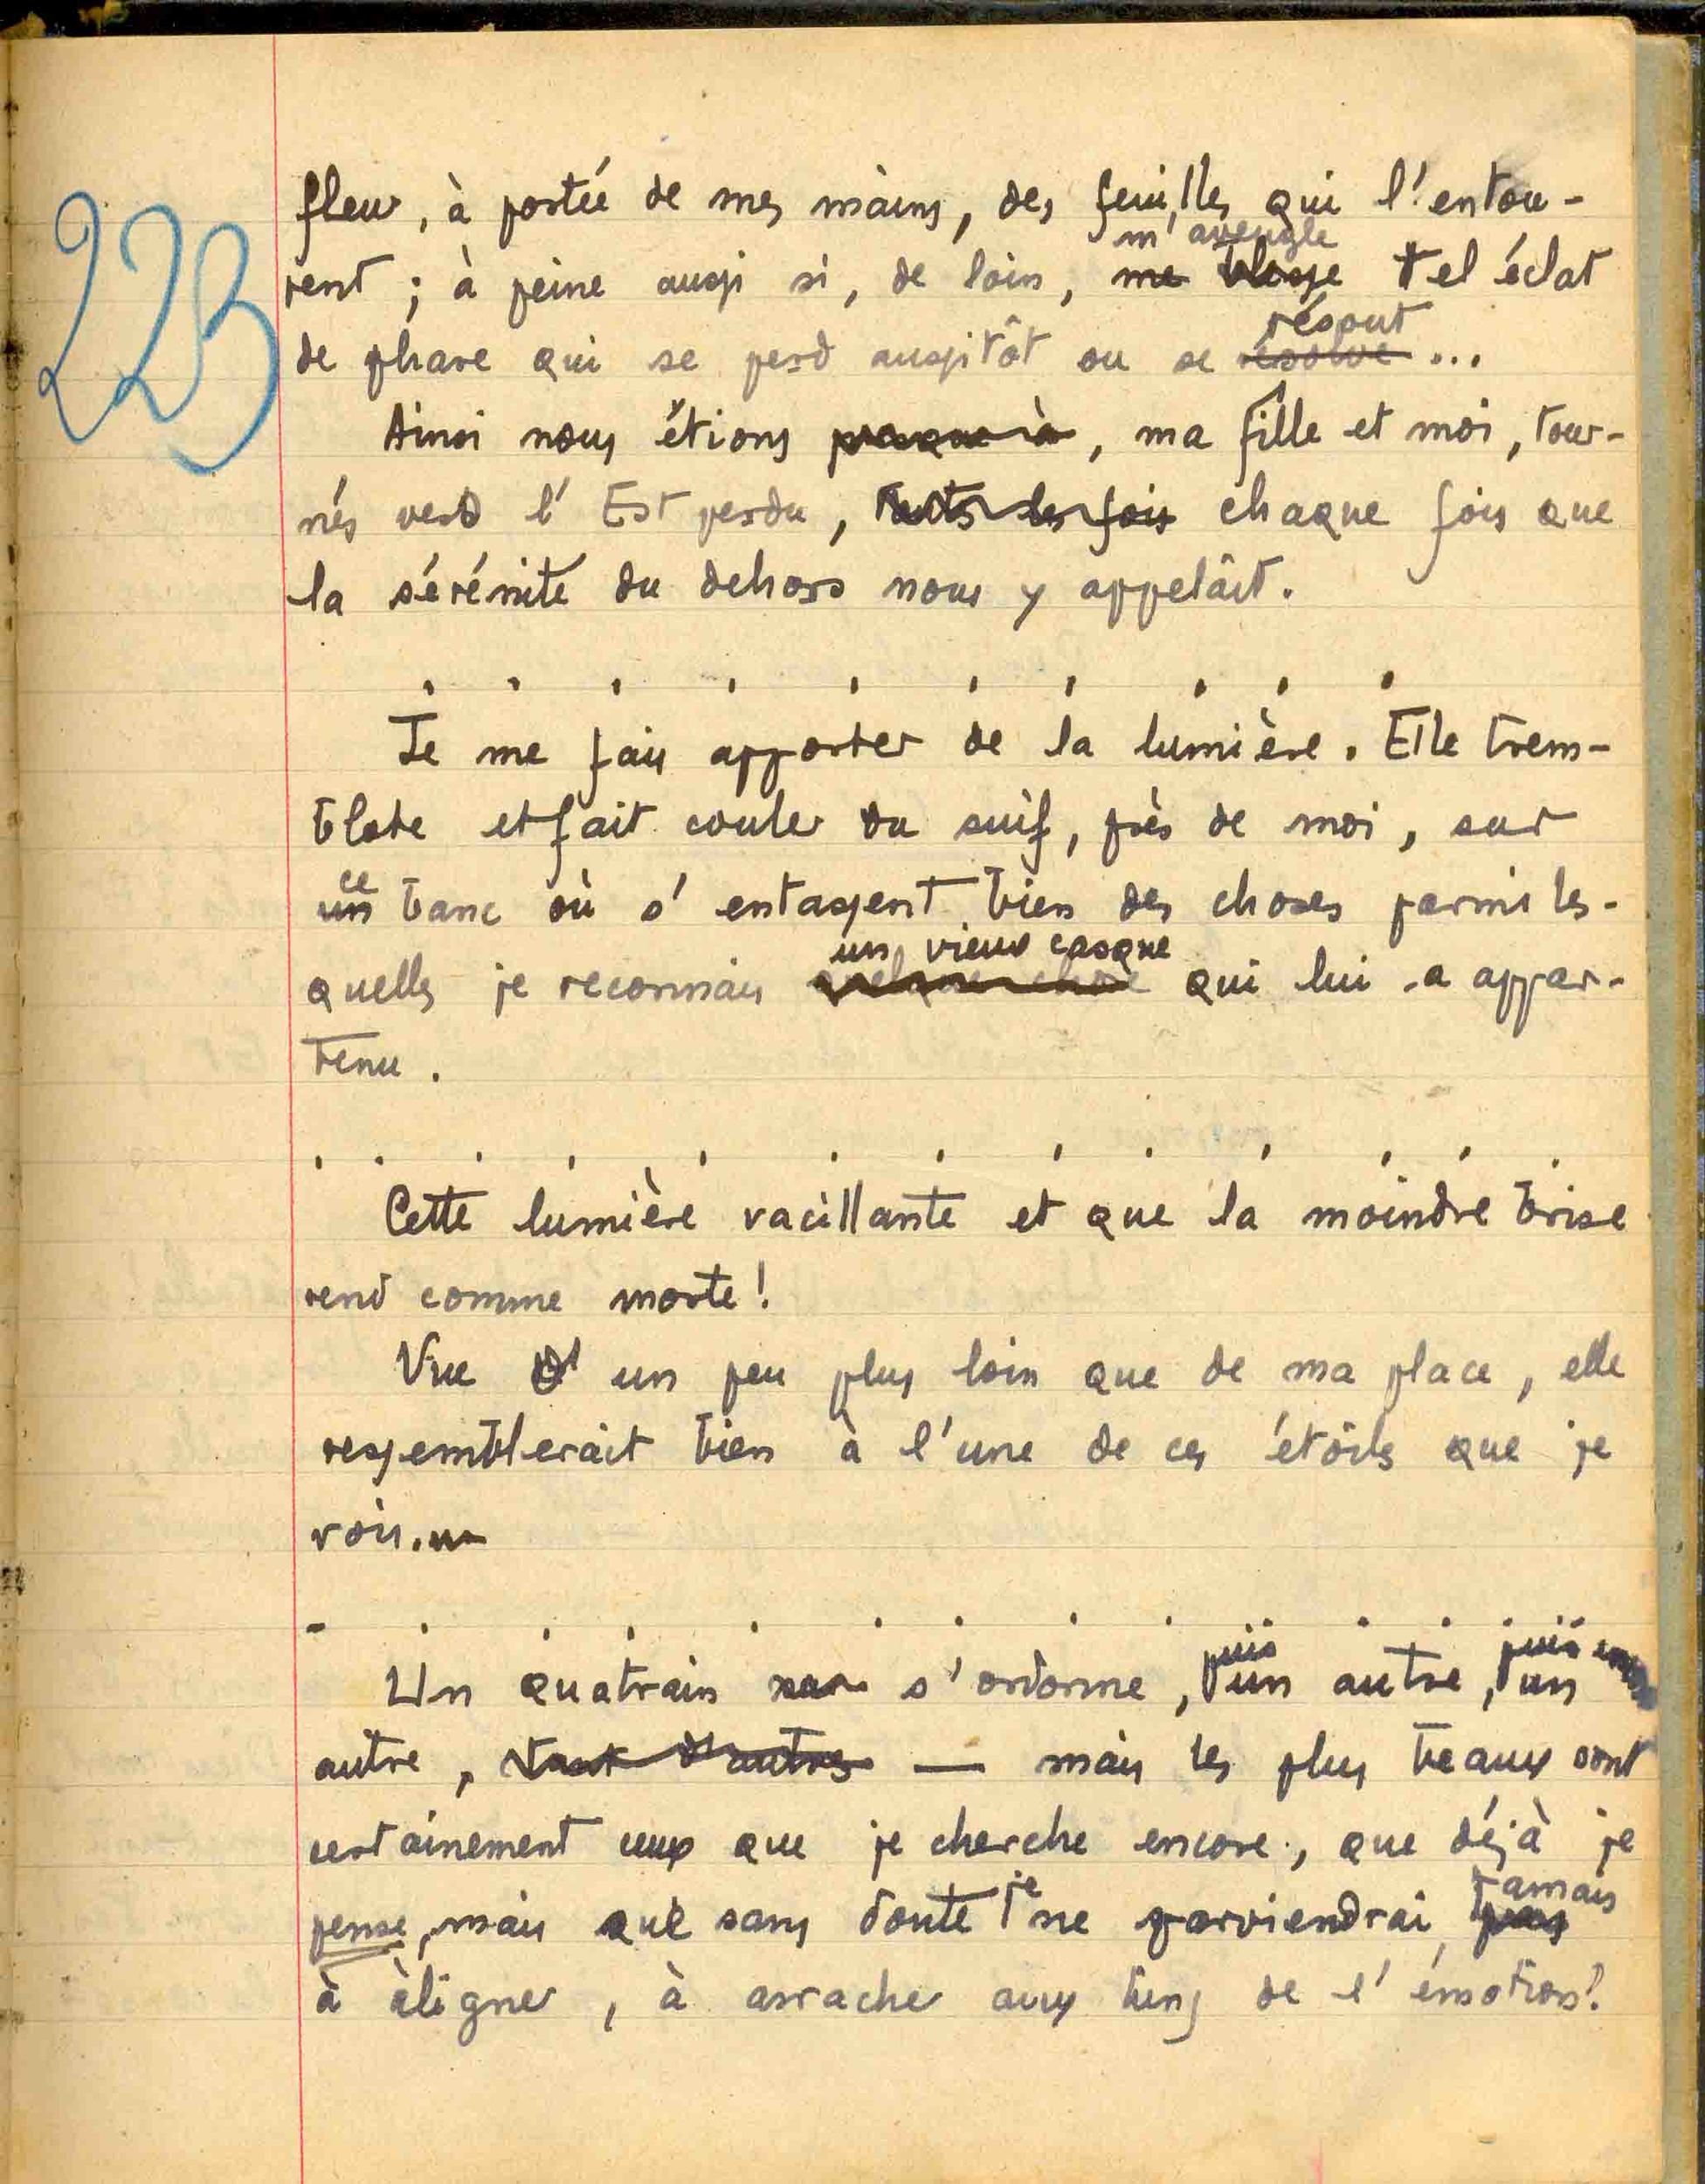 223
fleur, à portée de mes mains, des feuilles qui l'entou-
m'aveugle
rent ; à peine aussi si, de loin, me blesse tel éclat
résout
de phare qui se perd aussitôt ou se résolve ...
Ainsi nous étions presque à, ma fille et moi, tour-
nés vers l'Est perdu, toutes les fois chaque fois que
la sérénité du dehors nous y appelait.
. . . . . . . . . .
Je me fais apporter de la lumière. Elle trem-
blote et fait couler du suif, près de moi, sur
ce
un banc où s'entassent bien des choses parmi les-
un vieux casque
quelles je reconnais quelque chose qui lui a appar-
tenu.
. . . . . . . . . . . . .
Cette lumière vacillante et que la moindre brise
rend comme morte!
Vue d'un peu plus loin que de ma place, elle
ressemblerait bien à l'une de ces étoiles que je
vois.
- . . . . . . . . . . .
puis puis
Un quatrain s'ordonne, un autre, un
autre, tant d'autres — mais les plus beaux sont
certainement ceux que je cherche encore, que déjà je
je jamais
pense, mais que sans doute ne parviendrai pas
à aligner, à arracher aux liens de l'émotion!